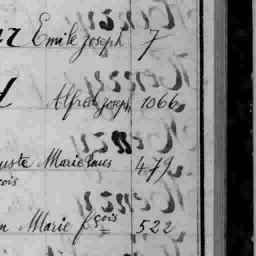 Emile Joseph 7
Alfred Joseph 1066
uste Marie Louis 479
çois
Marie fçois 522